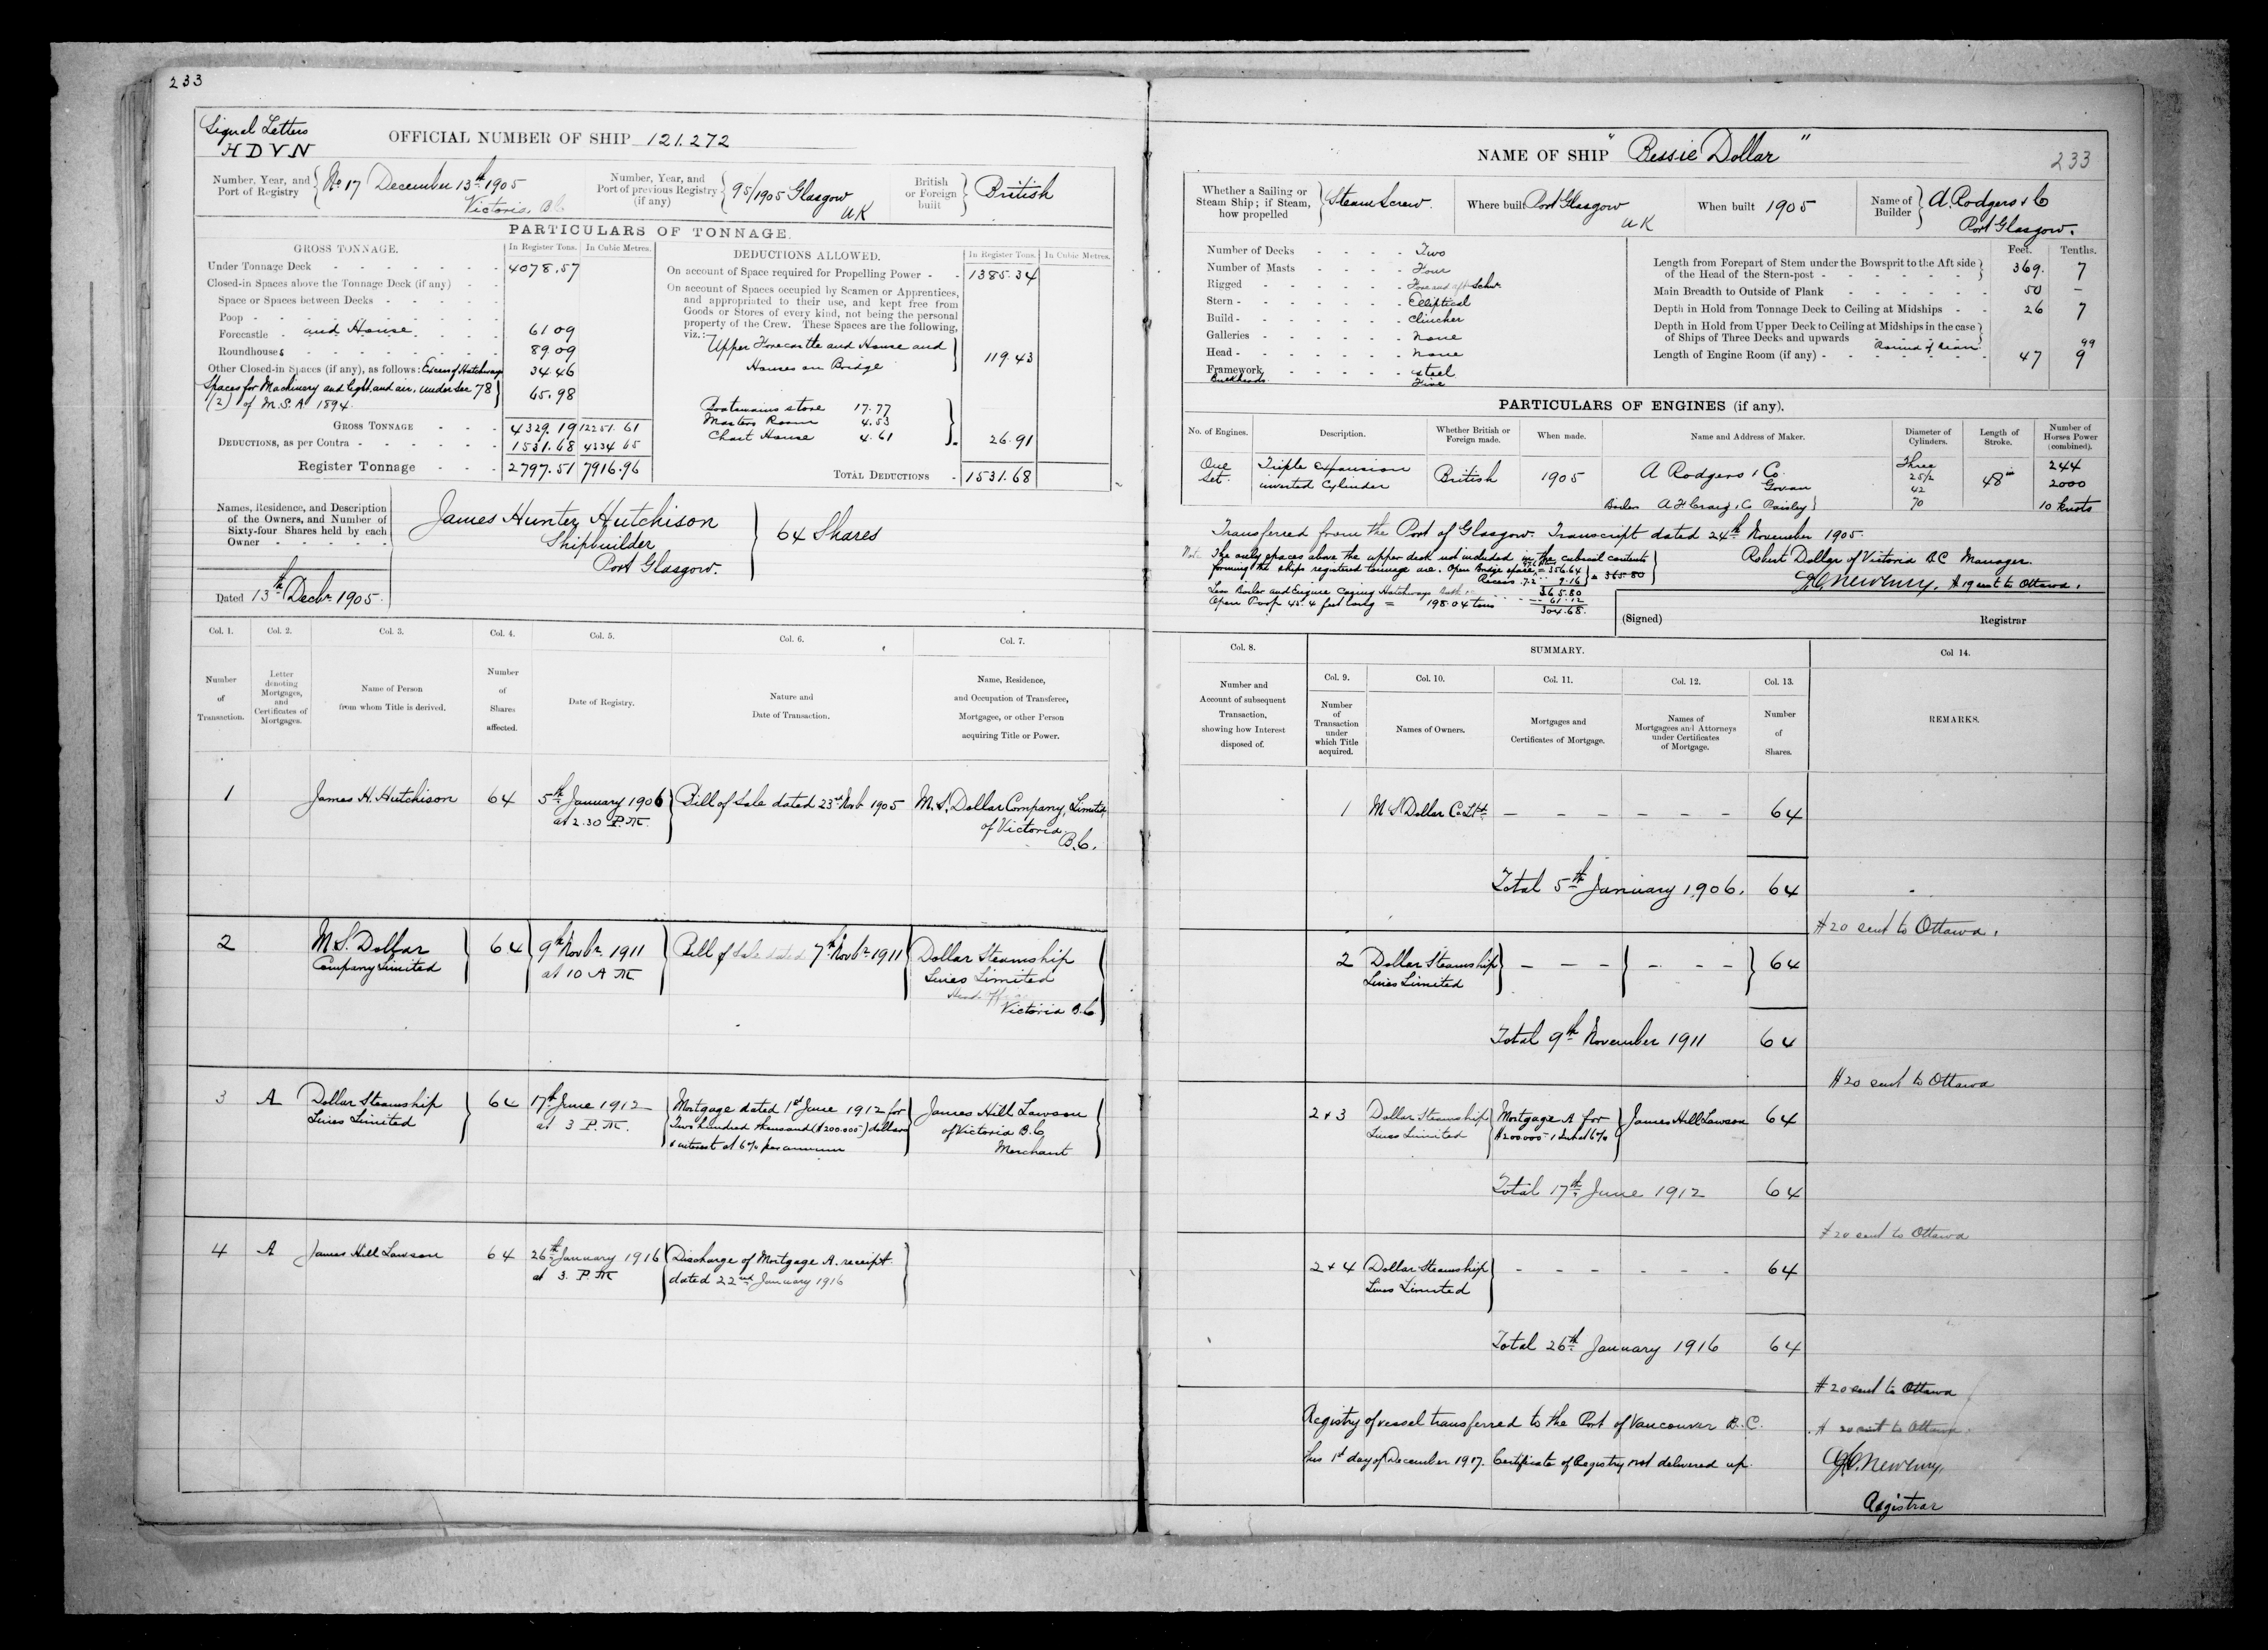 233
Signal Letters
H D V N
OFFICIAL NUMBER OF SHIP 121.272
Number, Year, and Port of Registry
No 17 December 13th 1905
Victoria, B.C.
Number, Year, and Port of previous Registry (if any)
95/1905 Glasgow
UK
British or Foreign built
British
PARTICULARS OF TONNAGE.
GROSS TONNAGE. In Register Tons. In Cubic Metres.
Under Tonnage Deck 4078.57
Closed-in Spaces above the Tonnage Deck (if any)
Space or Spaces between Decks
Poop
Forecastle and House 61 09
Roundhouses 89.09
Other Closed-in Spaces (if any), as follows: Excess of Hatchways 34.46
Spaces for Machinery and light and air, under Sec 78 (2) of M.S.A. 1894 65.98
GROSS TONNAGE 4329.19 12251.61
DEDUCTIONS, as per Contra 1531.68 4334 65
Register Tonnage 2797.51 7916.96
DEDUCTIONS ALLOWED. In Register Tons. In Cubic Metres.
On account of Space required for Propelling Power 1385.34
On account of Spaces occupied by Seamen or Apprentices,
and appropriated to their use, and kept free from
Goods or Stores of every kind, not being the personal
property of the Crew. These Spaces are the following,
viz.:
Upper Forecastle and House and
Houses on Bridge 119.43
Boatswains store 17.77
Masters Room 4.53
Chart House 4.61
26.91
TOTAL DEDUCTIONS 1531.68
Names, Residence, and Description
of the Owners, and Number of
Sixty-four Shares held by each
Owner
James Hunter Hutchison
Shipbuilder
Port Glasgow.
64 Shares
Dated 13th Decbr 1905.
Col. 1. Col. 2. Col. 3. Col. 4. Col. 5. Col. 6. Col. 7.
Number of Transaction.
Letter denoting Mortgages, and Certificates of Mortgages.
Name of Person from whom Title is derived.
Number of Shares affected.
Date of Registry.
Nature and Date of Transaction.
Name, Residence, and Occupation of Transferee, Mortgagee, or other Person acquiring Title or Power.
1 James H. Hutchison 64 5th January 1906 at 2.30 P.M. Bill of Sale dated 23rd Novb 1905 M. S. Dollar Company, Limited of Victoria B.C.
2 M S. Dollar Company Limited 64 9th Novbr 1911 at 10 A M Bill of Sale dated 7th Novbr 1911 Dollar Steamship Lines Limited
Victoria B.C
3 A Dollar Steamship Lines Limited 64 17th June 1912 at 3 P.M. Mortgage dated 1st June 1912 for Two hundred thousand ($200.000) dollars & interest at 6% per annum James Hill Lawson of Victoria B.C. Merchant
4 A James Hill Lawson 64 26th January 1916 at 3. P.M Discharge of Mortgage A. receipt dated 22nd January 1916
NAME OF SHIP "Bessie Dollar"
233
Whether a Sailing or Steam Ship; if Steam, how propelled
Steam Screw.
Where built Port Glasgow UK
When built 1905
Name of Builder
A. Rodgers & Co
Port Glasgow.
Number of Decks Two
Number of Masts Four
Rigged Fore and aft Schr.
Stern Elliptical
Build Clincher
Galleries None
Head None
Framework steel
Bulkheads Five
Feet. Tenths.
Length from Forepart of Stem under the Bowsprit to the Aft side
of the Head of the Stern-post 369. 7
Main Breadth to Outside of Plank 50 –
Depth in Hold from Tonnage Deck to Ceiling at Midships 26 7
Depth in Hold from Upper Deck to Ceiling at Midships in the case
of Ships of Three Decks and upwards
Round of Beam 99
Length of Engine Room (if any) 47 9
PARTICULARS OF ENGINES (if any).
No. of Engines. Description. Whether British or Foreign made. When made. Name and Address of Maker. Diameter of Cylinders. Length of Stroke. Number of Horses Power (combined).
One Set. Triple Expansion inverted Cylinder British 1905 A Rodgers & Co. Govan
Boilers A F Craig & Co Paisley
Three 25½ 42 70
48 in
244
2000
10 knots
Transferred from the Port of Glasgow. Transcript dated 24th November 1905.
Note The only spaces above the upper deck not included in the cubical contents
forming the ships registered tonnage are. Open Bridge space = 356.64
Recess 7.2 9.16 = 365.80
365.80
Less Boiler and Engine Casing Hatchways Both 61.12
Open Poop 43.4 feet long = 198.04 tons 304.68.
Robert Dollar of Victoria BC Manager.
Newbury, # 19 sent to Ottawa.
(Signed) Registrar
Col. 8. SUMMARY. Col 14.
Col. 9. Col. 10. Col. 11. Col. 12. Col. 13.
Number and Account of subsequent Transaction, showing how Interest disposed of.
Number of Transaction under which Title acquired.
Names of Owners.
Mortgages and Certificates of Mortgage.
Names of Mortgagees and Attorneys under Certificates of Mortgage.
Number of Shares.
REMARKS.
1 M S Dollar Co Ltd – – – – – – 64
Total 5th January 1906. 64
# 20 sent to Ottawa.
2 Dollar Steamship Lines Limited – – – – – – 64
Total 9th November 1911 64
# 20 sent to Ottawa
2 & 3 Dollar Steamship Lines Limited Mortgage A for $200.000 & Int at 6% James Hill Lawson 64
Total 17th June 1912 64
# 20 sent to Ottawa
2 & 4 Dollar Steamship Lines Limited – – – – – – 64
Total 26th January 1916 64
# 20 sent to Ottawa
Registry of vessel transferred to the Port of Vancouver B.C.
this 1st day of December 1917. Certificate of Registry not delivered up.
# 20 sent to Ottawa.
Newbury,
Registrar